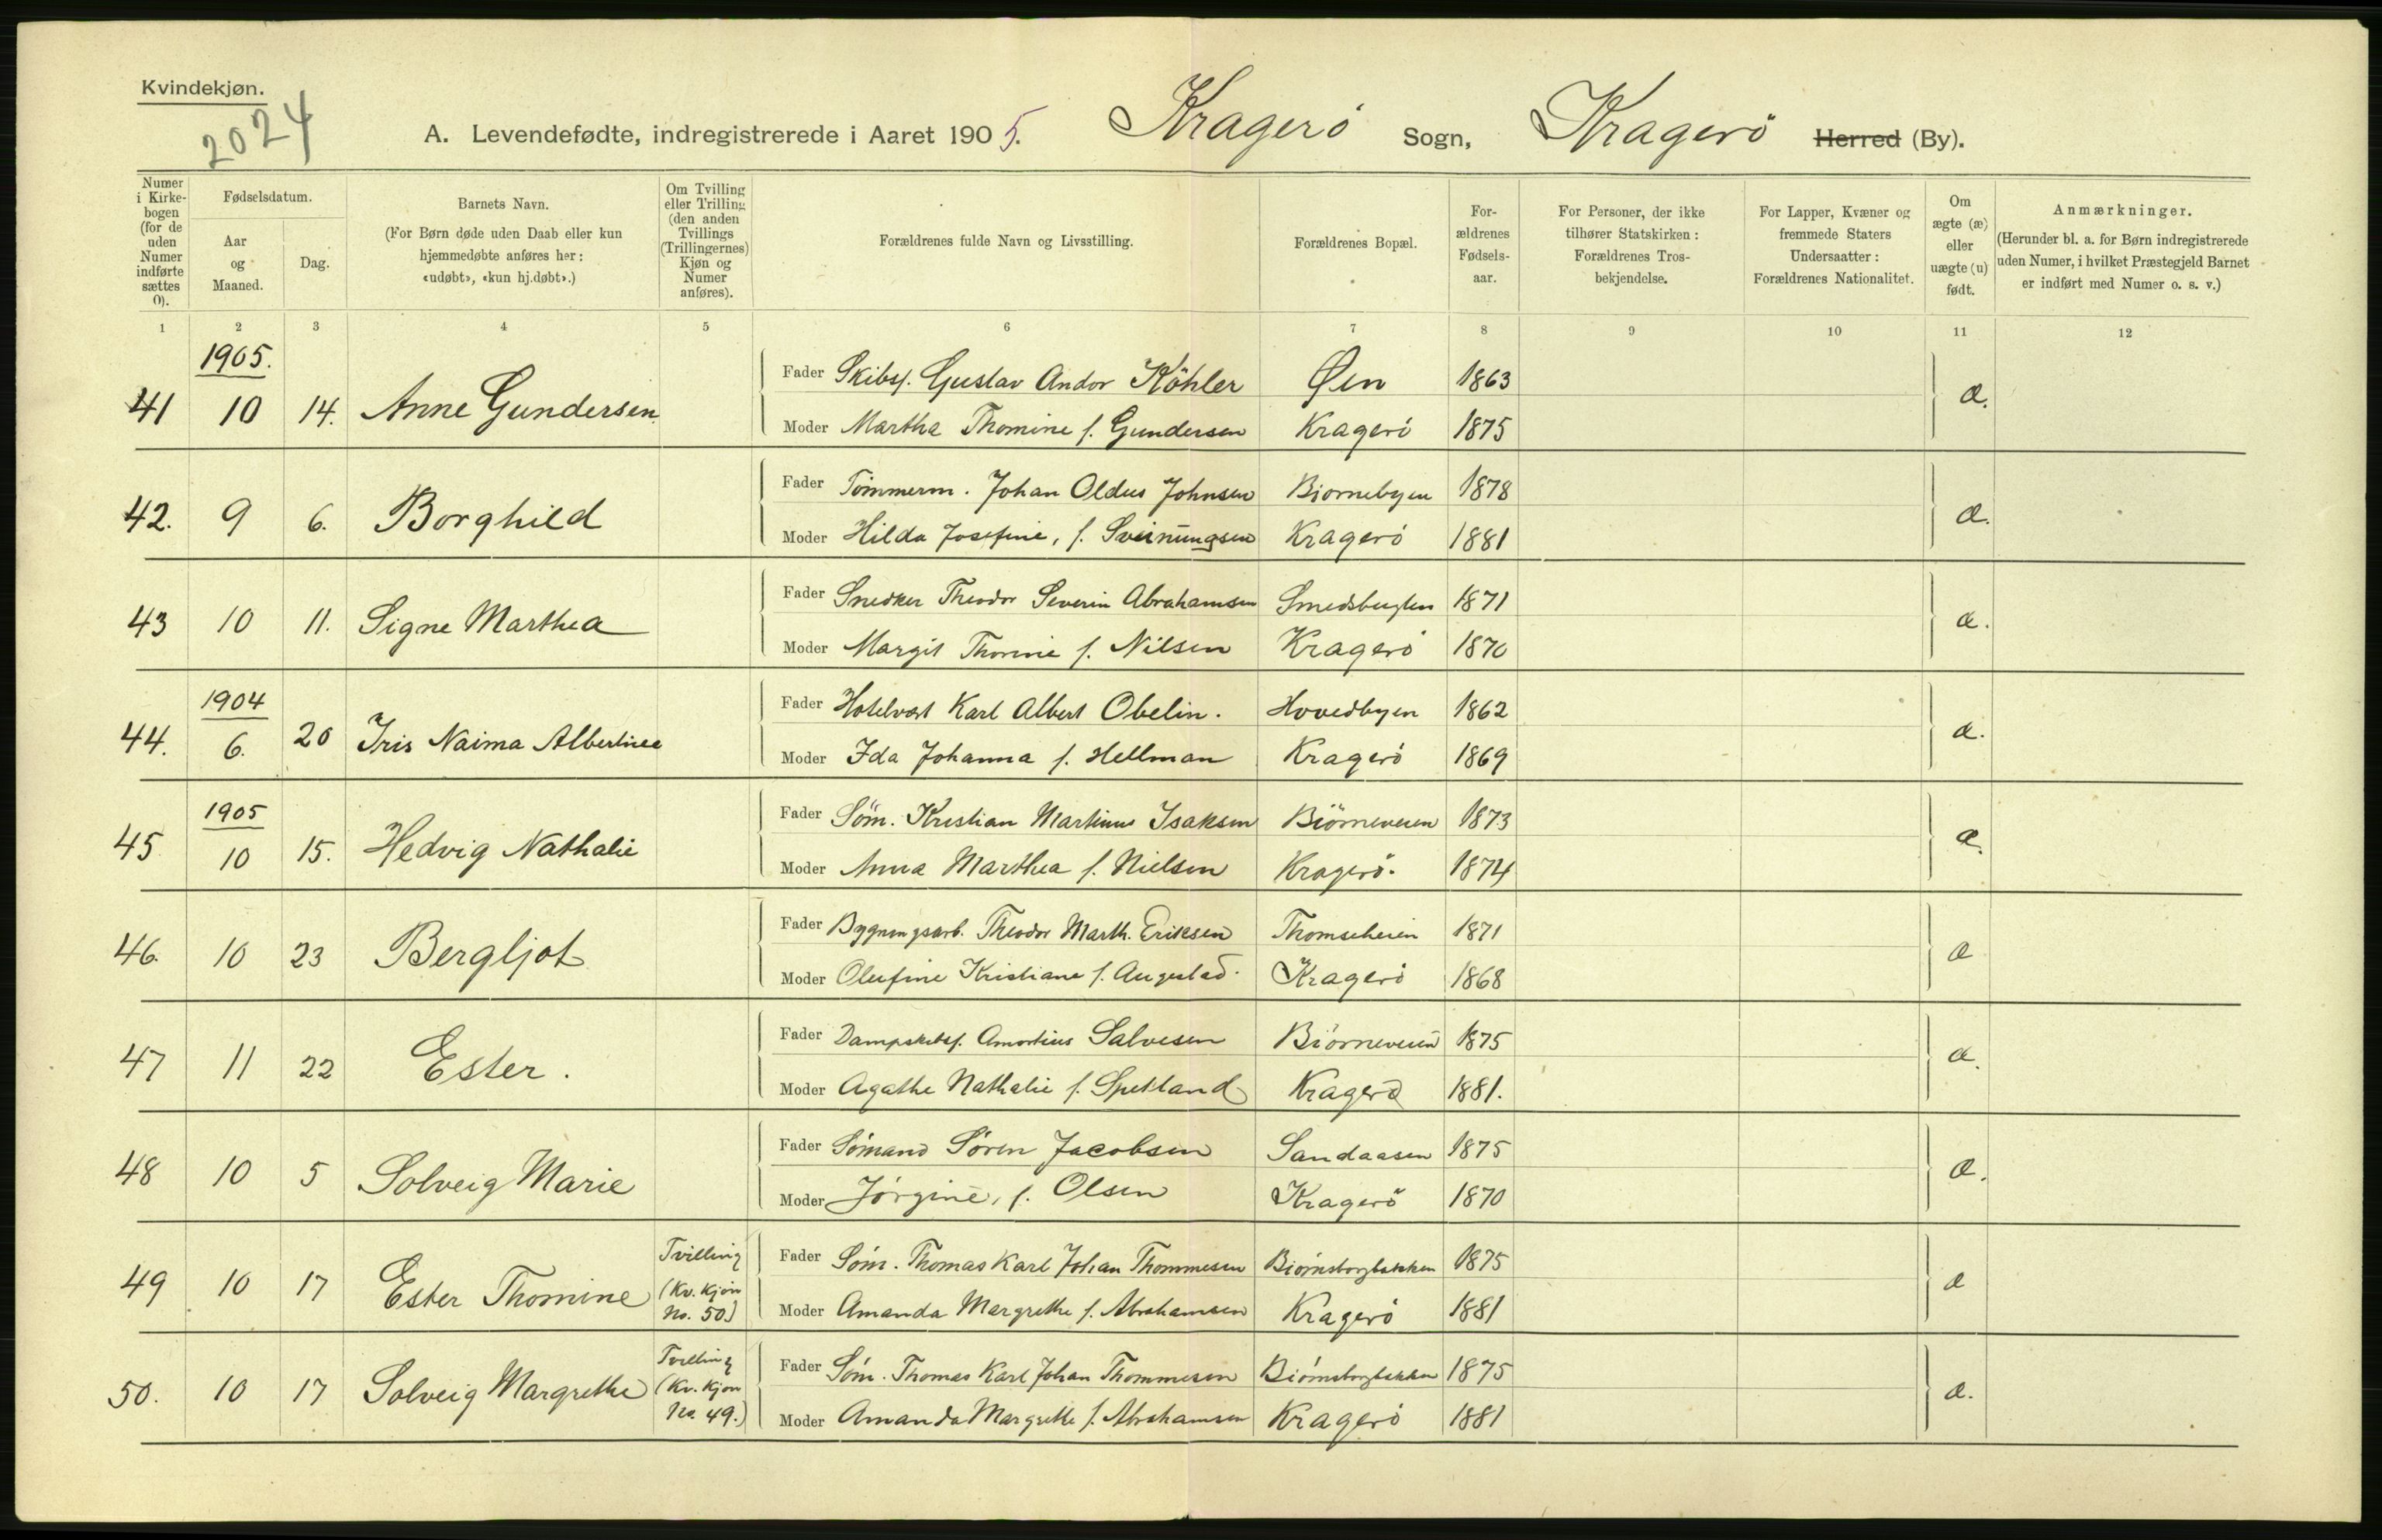 Kvindekjøn.
2024
A. Levendefødte, indregistrerede i Aaret 1905. Kragerö Sogn, Kragerö Herred (By).
Numer i Kirkebogen (for de uden Numer indførte sættes 0).
Fødselsdatum.
Aar og Maaned.
Dag.
Barnets Navn.
(For Børn døde uden Daab eller kun hjemmedøbte anføres her: «udøbt», «kun hj.døbt».)
Om Tvilling eller Trilling (den anden Tvillings (Trillingernes) Kjøn og Numer anføres).
Forældrenes fulde Navn og Livsstilling.
Forældrenes Bopæl.
For-ældrenes Fødsels-aar.
For Personer, der ikke tilhører Statskirken: Forældrenes Tros-bekjendelse.
For Lapper, Kvæner og fremmede Staters Undersaatter: Forældrenes Nationalitet.
Om ægte (æ) eller uægte (u) født.
Anmærkninger.
(Herunder bl. a. for Børn indregistrerede uden Numer, i hvilket Præstegjeld Barnet er indført med Numer o. s. v.)
1 2 3 4 5 6 7 8 9 10 11 12
1905.
41 10 14. Anne Gundersen
Fader Skibsf. Gustav Andor Köhler Øen 1863
Moder Martha Thomine f. Gundersen Kragerö 1875
æ.
42. 9 6. Borghild
Fader Tömmerm. Johan Oldus Johnsen Biornebyen 1878
Moder Hilda Josefine, f. Sveinungsen Kragerö 1881
æ.
43 10 11. Signe Marthea
Fader Snedker Theodor Severin Abrahamsen 1871
Moder Margit Thomine f. Nilsen Kragerö 1870
æ.
1904
44. 6. 20 Iris Naima Albertine
Fader Hotelvært Karl Albert Obelin. Hovedbyen 1862
Moder Ida Johanna f. Hellman Kragerö 1869
æ.
1905
45 10 15. Hedvig Nathalie
Fader Söm. Kristian Martinus Isaksen Biörneveien 1873
Moder Anna Marthea f. Nielsen Kragerö. 1874
æ.
46. 10 23 Bergljot
Fader Bygningsarb. Theodor Marth. Eriksen Thomseheien 1871
Moder Olufine Kristiane f. Augestad. Kragerö 1868
æ
47 11 22 Ester.
Fader Dampskibsf. Salvesen Biörneveien 1875
Moder Agathe Nathalie f. Spetland Kragerö 1881.
æ.
48 10 5 Solveig Marie
Fader Sömand Sören Jacobsen Sandaasen 1875
Moder Jörgine, f. Olsen Kragerö 1870
æ.
49 10 17 Ester Thomine Tvilling (Kv. Kjön No. 50)
Fader Söm. Thomas Karl Johan Thommesen Biörnsborgbakken 1875
Moder Amanda Margrethe f. Abrahamsen Kragerö 1881
æ
50. 10 17 Solveig Margrethe Tvilling (Kv. Kjön No. 49.)
Fader Söm. Thomas Karl Johan Thommesen Biörnsborgbakken 1875
Moder Amanda Margrethe f. Abrahamsen Kragerö 1881
æ.